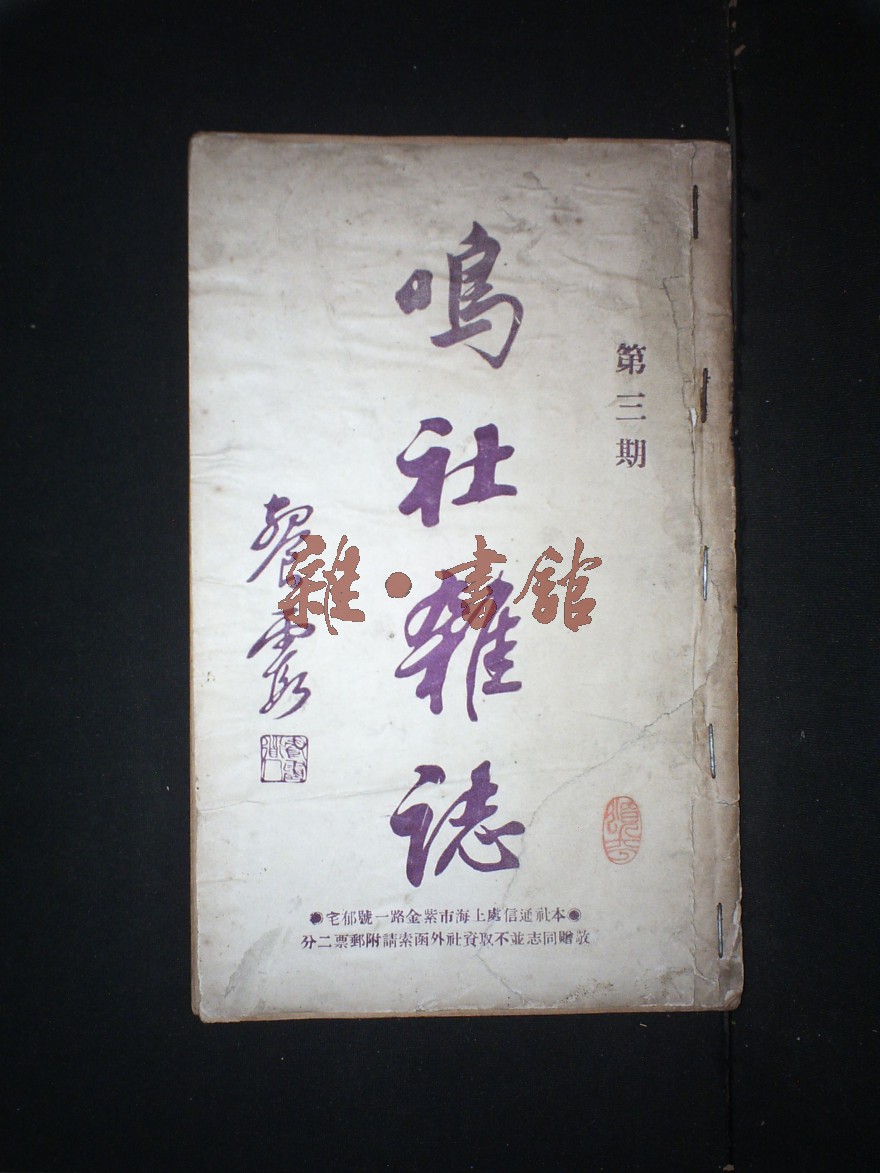 第三期
鳴社雜誌
雜·書館
●本社通信處上海市紫金路一號郁宅●
敬贈同志並不取資社外函索請附郵票二分